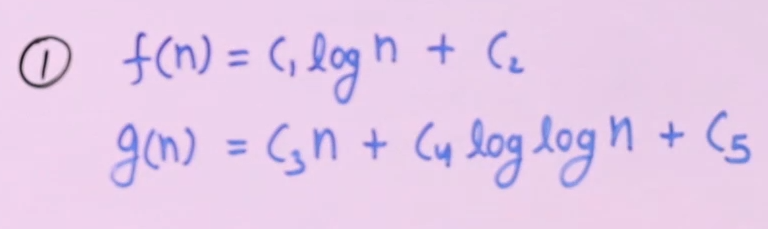 ① f(n) = C₁ log n + C₂
g(n) = C₃n + C₄ log log n + C₅